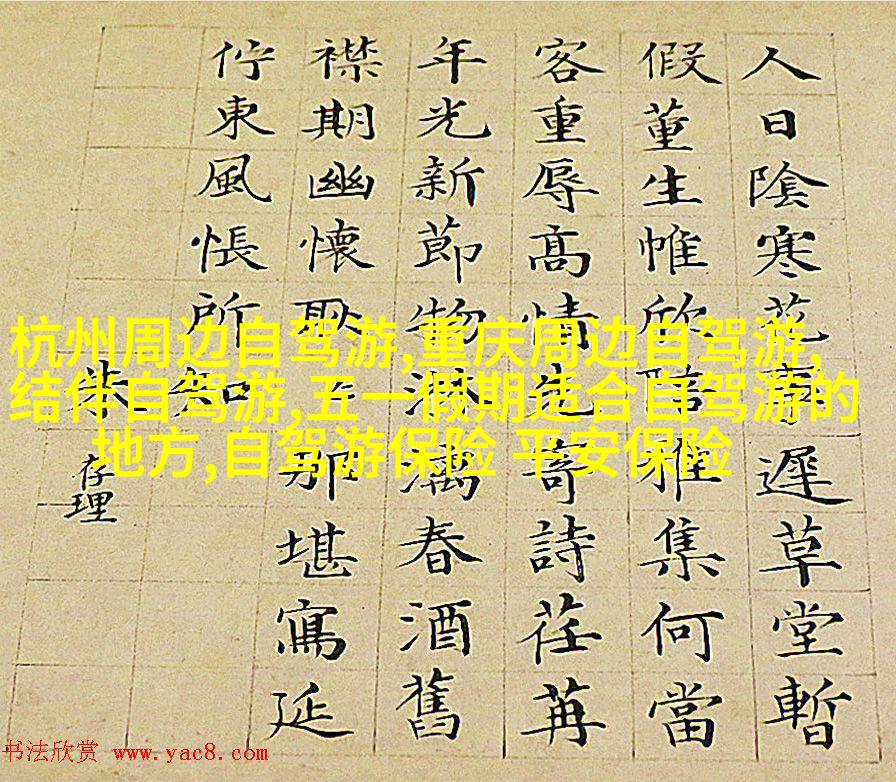 人日陰寒花事遲草堂暫
假董生帷欣陪雅集何當
客重辱高情也寄詩荏苒
年光新節物淋漓春酒舊
襟期幽懷耿々那堪寫延
佇東風悵所知
朱存理
杭州周边自驾游,重庆周边自驾游,
结伴自驾游,五一假期适合自驾游的
地方,自驾游保险 平安保险
书法欣赏 www.yac8.com